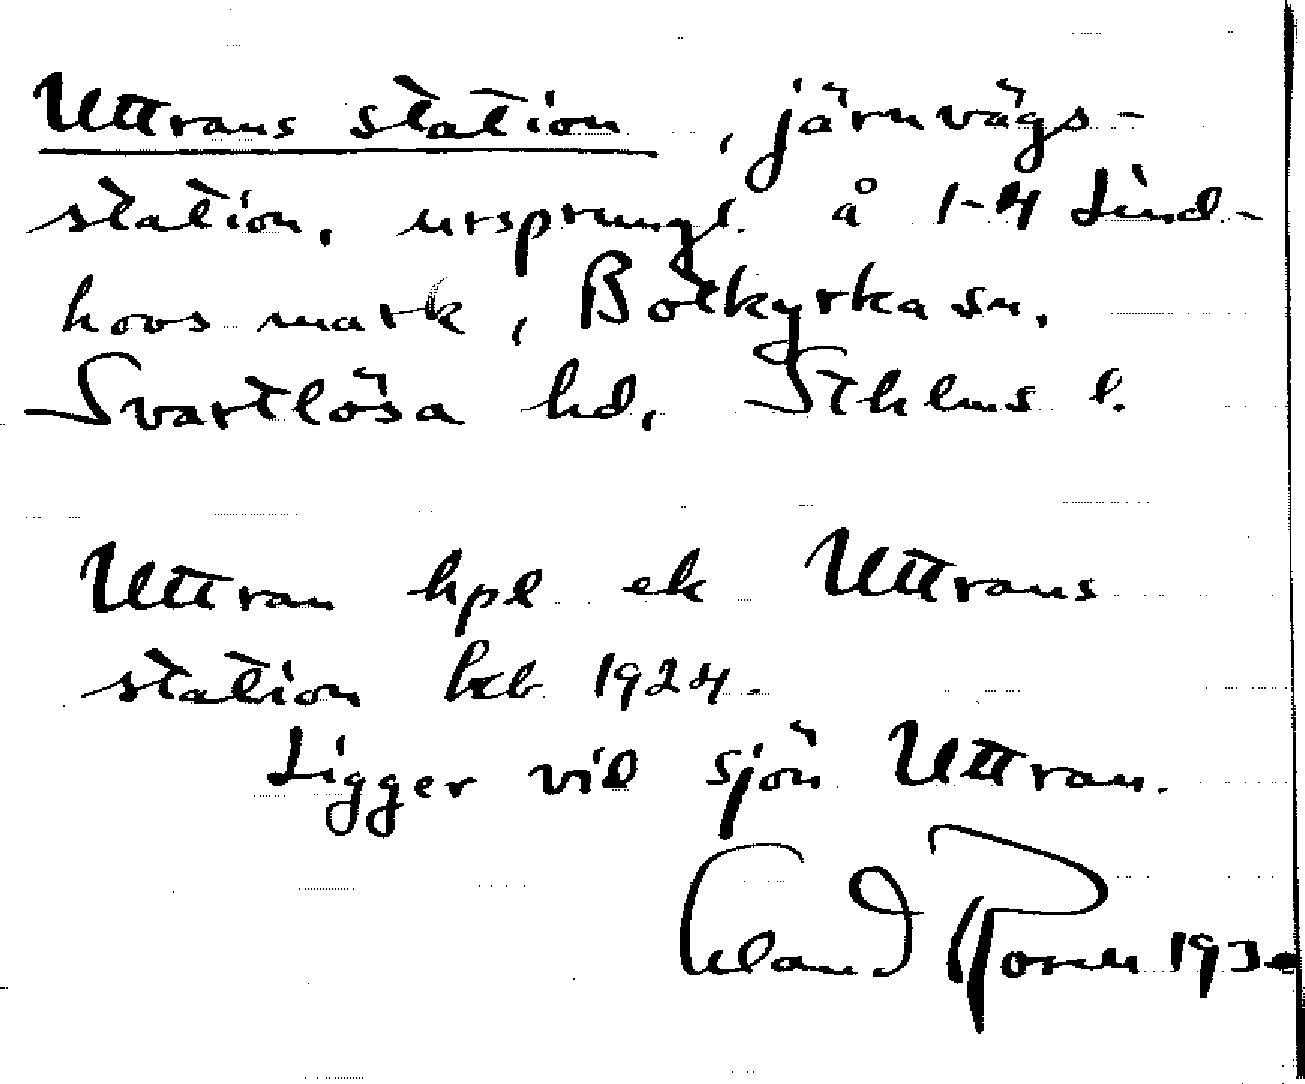 Uttrans station, järnvägs-
station, ursprungl. å 1-4 Lind-
hovs mark, Botkyrka sn,
Svartlösa hd, Sthlms l.
Uttran hpl ek Uttrans
station keb 1924.
Ligger vid sjön Uttran.
Erland Rosell